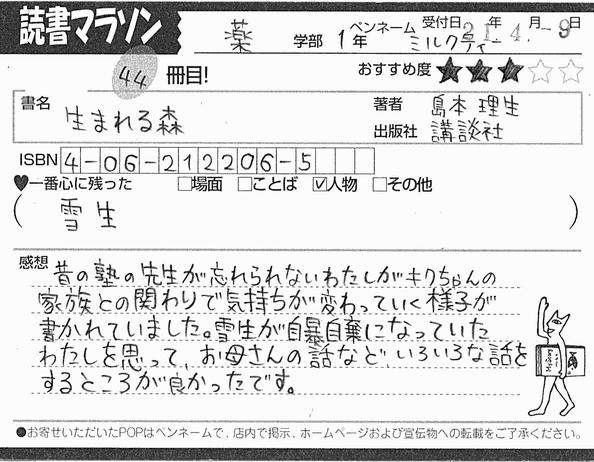 読書マラソン
薬 学部 1年 ペンネーム ミルクティー 受付日 21年 4.月 -9日
44 冊目! おすすめ度 ★★★☆☆
書名 生まれる森 著者 島本 理生
出版社 講談社
ISBN 4-06-212206-5
♥一番心に残った □場面 □ことば ☑人物 □その他
( 雪生 )
感想 昔の塾の先生が忘れられないわたしがキクちゃんの
家族との関わりで気持ちが変わっていく様子が
書かれていました。雪生が自暴自棄になっていた
わたしを思って、お母さんの話など、いろいろな話を
するところが良かったです。
●お寄せいただいたPOPはペンネームで、店内で掲示、ホームページおよび宣伝物への転載をご了承ください。